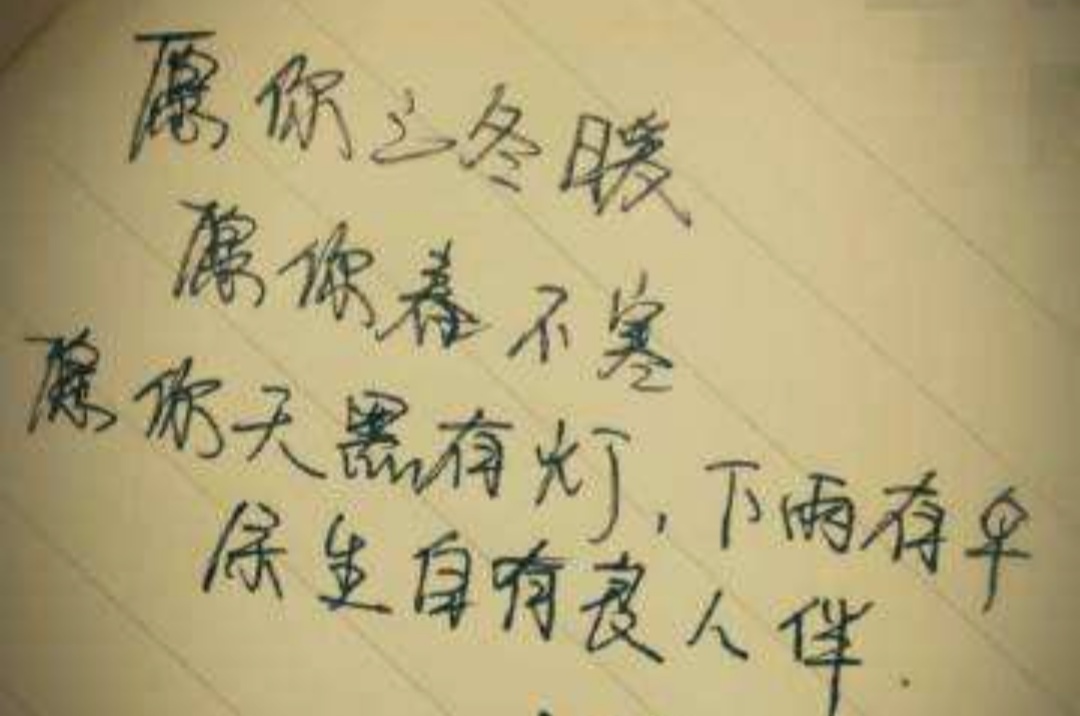 愿你三冬暖
愿你春不寒
愿你天黑有灯,下雨有伞
余生自有良人伴.